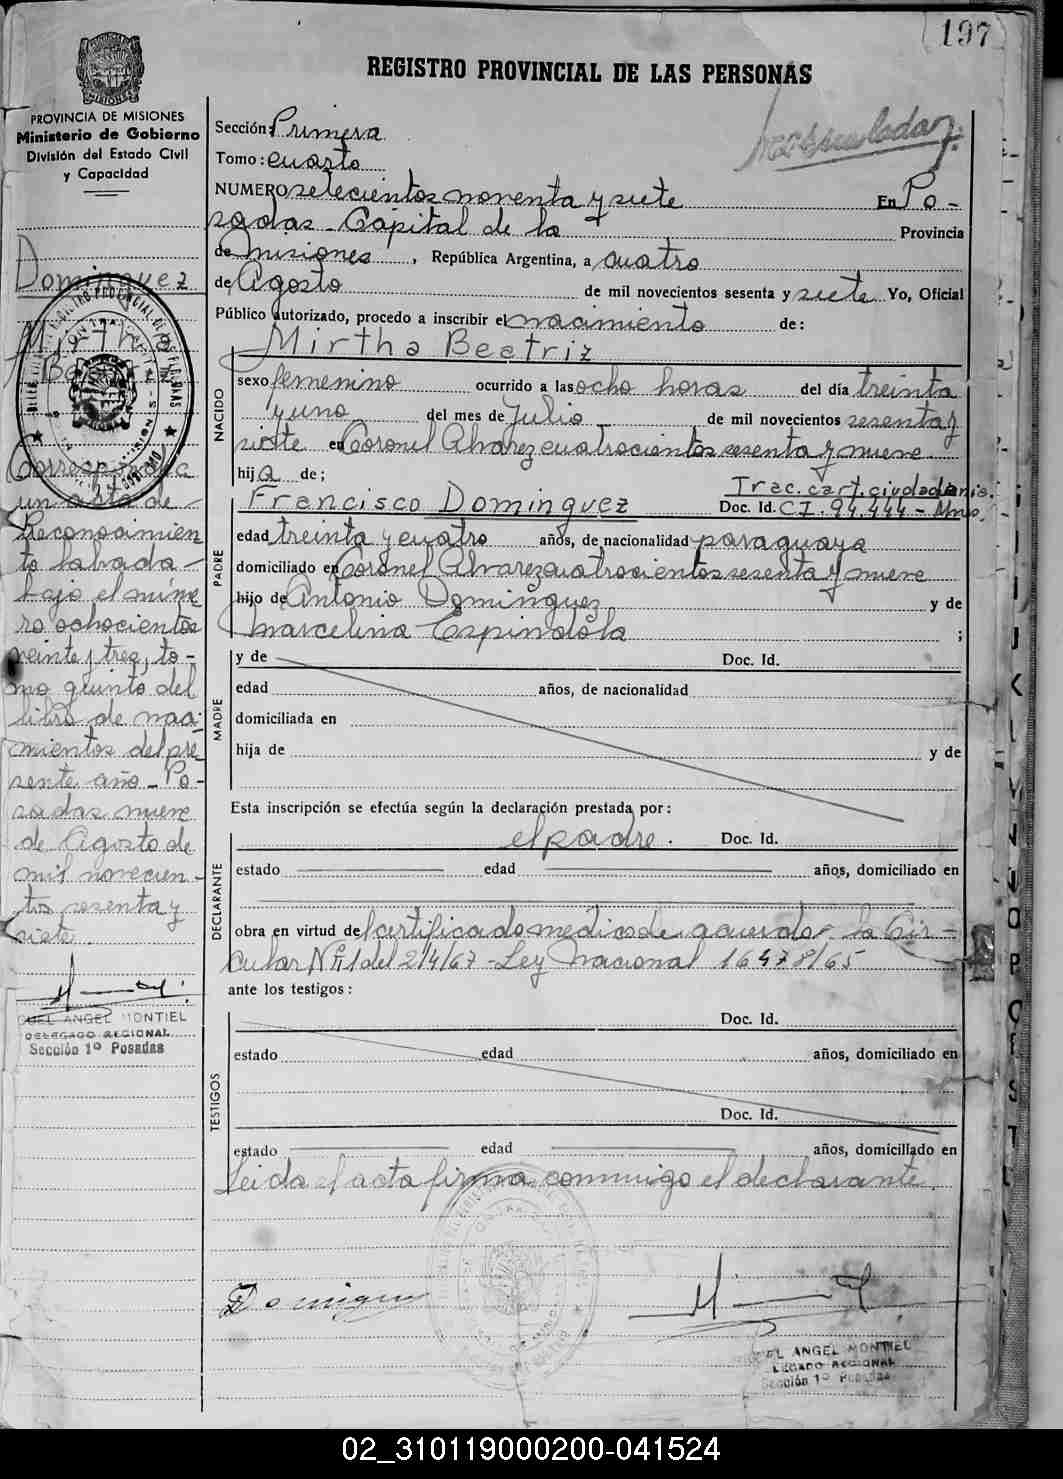 197
REGISTRO PROVINCIAL DE LAS PERSONAS
PROVINCIA DE MISIONES
Ministerio de Gobierno
División del Estado Civil
y Capacidad
Sección: Primera
Tomo: cuarto
NUMERO setecientos noventa y siete En Po-
sadas - Capital de la Provincia
de Misiones, República Argentina, a cuatro
de Agosto de mil novecientos sesenta y siete Yo, Oficial
Público autorizado, procedo a inscribir el nacimiento de:
NACIDO
Mirtha Beatriz
sexo femenino ocurrido a las ocho horas del día treinta
y uno del mes de Julio de mil novecientos sesenta y
siete en Coronel Alvarez cuatrocientos sesenta y nueve
hija de;
Trac. cart. ciudadania.
PADRE
Francisco Dominguez Doc. Id. CI. 94.444 - Mns.
edad treinta y cuatro años, de nacionalidad paraguaya
domiciliado en Coronel Alvarez cuatrocientos sesenta y nueve
hijo de Antonio Dominguez y de
Marcelina Espindola ;
MADRE
y de Doc. Id.
edad años, de nacionalidad
domiciliada en
hija de y de
Esta inscripción se efectúa según la declaración prestada por:
DECLARANTE
el padre. Doc. Id.
estado edad años, domiciliado en
obra en virtud del certificado medico de acuerdo - la Cir-
cular Nº 11 del 2/4/67 - Ley Nacional 16478/65
ante los testigos:
TESTIGOS
Doc. Id.
estado edad años, domiciliado en
Doc. Id.
estado edad años, domiciliado en
Leida el acta firma conmigo el declarante.
Dominguez
EL ANGEL MONTIEL
LEGADO REGIONAL
Sección 1º Posadas
Dominguez
Mirtha
Corresponde
un acta de-
Reconocimien
to labrada-
bajo el núme
ro ochocientos
veinte y tres, to-
mo quinto del
libro de naci-
mientos del pre
sente año - Po-
sadas nueve
de Agosto de
mil novecien-
tos sesenta y
siete
GUEL ANGEL MONTIEL
DELEGADO REGIONAL
Sección 1º Posadas
02_310119000200-041524